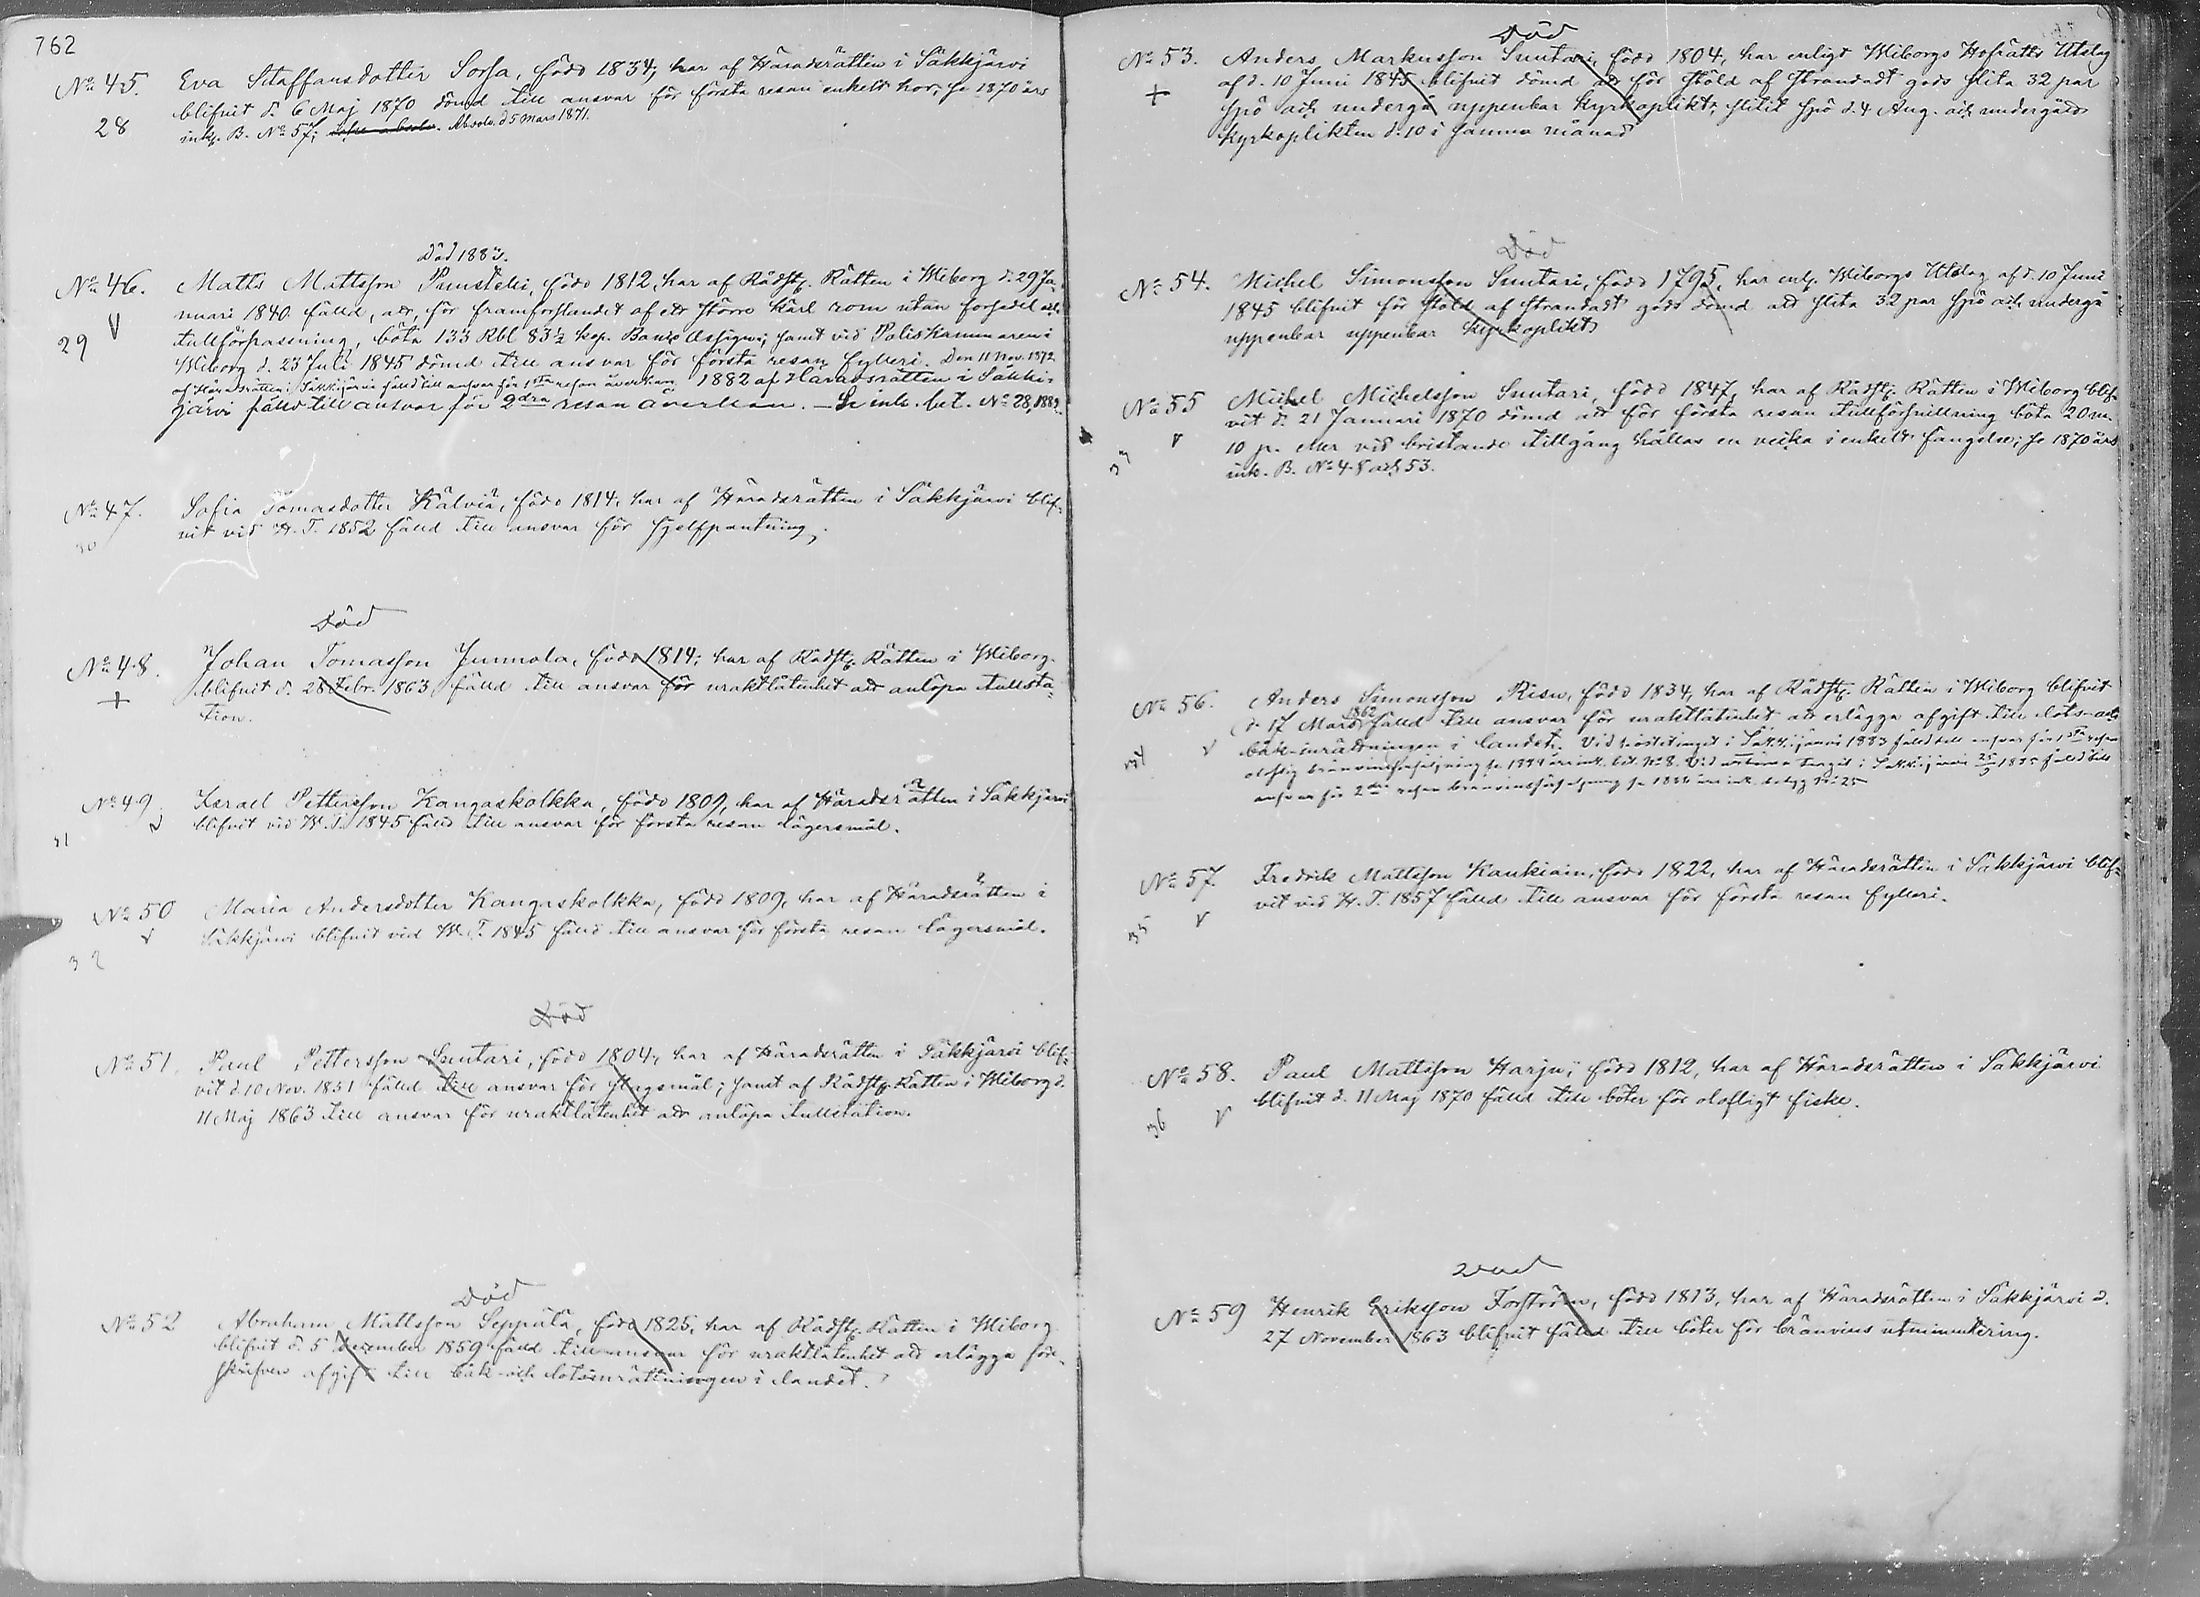 762
No 45. Eva Staffansdotter Sorsa, född 1834, har af Häradsrätten i Säkkjärvi
blifvit d. 6 Maj 1870 dömd till ansvar för första resan enkelt hor, se 1870 års
28
ink. B. No 57; Absolv. d 5 Mars 1871.
Död 1883.
No 46. Matts Mattsson, född 1812, har af Rådstg. Rätten i Wiborg d. 29 Ja-
nuari 1840 fälld, att, för framforslandet af ett större kärl rom utan forsedel och
29 V
tullförpassning, böta 133 Rbl 83½ kop. Banco Assign; samt vid Poliskammaren i
Wiborg d. 23 Juli 1845 dömd till ansvar för första resan fylleri. Den 11 Nov. 1872
af Häradsrätten i Säkkijärvi fälld till ansvar för 1sta resan åverkan 1882 af Häradsrätten i Säkki-
järvi fälld till ansvar för 2dra resan åverkan. – Se ink. bet. No 28, 1882.
No 47. Sofia Tomasdotter Kälviä, född 1814, har af Häradsrätten i Säkkjärvi blif-
vit vid H. T. 1852 fälld till ansvar för sjelfpantning.
30
Död
No 48. Johan Tomasson Junnola, född 1814; har af Rådstg. Rätten i Wiborg
+ blifvit d. 28 Febr. 1863, fälld till ansvar för uraktlåtenhet att anlöpa tullsta-
tion.
No 49. Israel Pettersson Kangaskolkka, född 1809, har af Häradsrätten i Säkkjärvi
v blifvit vid W. T. 1845 fälld till ansvar för första resan lägersmål.
31
No 50 Maria Andersdotter Kangaskolkka, född 1809, har af Häradsrätten i
v Säkkjärvi blifvit vid W. T. 1845 fälld till ansvar för första resan lägersmål.
32
Död
No 51. Paul Pettersson Suutari, född 1804, har af Häradsrätten i Säkkjärvi blif-
vit d. 10 Nov. 1851 fälld till ansvar för slagsmål; samt af Rådstg. Rätten i Wiborg d.
11 Maj 1863 till ansvar för uraktlåtenhet att anlöpa tullstation.
Död
No 52 Abraham Mattsson Seppälä, född 1825, har af Rådstg. Rätten i Wiborg
blifvit d. 5 December 1859 fälld till ansvar för uraktlåtenhet att erlägga före-
skrifven afgift till båk- och lotsinrättningen i landet.
Död
No 53. Anders Markusson Suutari, född 1804, har enligt Wiborgs Hofrätts Utslag
af d. 10 Juni 1845 blifvit dömd att för stöld af strandadt gods slita 32 par
+
spö och undergå uppenbar kyrkoplikt; slitit spö d. 4 Aug. och undergått
kyrkoplikten d. 10 i samma månad
Död
No 54. Michel Simonsson Suutari, född 1795, har enl. Wiborgs Utslag af d. 10 Juni
1845 blifvit för stöld af strandadt gods dömd att slita 32 par spö och undergå
uppenbar uppenbar kyrkoplikt
No 55 Michel Michelsson Suutari, född 1847, har af Rådstg. Rätten i Wiborg blif-
vit d. 21 Januari 1870 dömd att för första resan tullförsnillning böta 20 m.
v
10 p. eller vid bristande tillgång hållas en vecka i enkelt fängelse; se 1870 års
33
ink. B. No 48 och 53.
No 56. Anders Simonsson Risu, född 1834, har af Rådstg. Rätten i Wiborg blifvit
d. 17 Mars 1862 fälld till ansvar för uraktlåtenhet att erlägga afgift till lots- och
34 v båk-inrättningen i landet. Vid hösttinget i Säkkijärvi 1883 fälld till ansvar för 1sta resan
olaflig bränvinsförsäljning se 1884 års ink. bet. No 8. Vid tinget i Säkkijärvi 1885 fälld till
ansvar för 2dra resan bränvinsförsäljning se 1886 års ink. No 25
No 57. Fredrik Mattsson Kaukiain, född 1822, har af Häradsrätten i Säkkjärvi blif-
vit vid H. T. 1857 fälld till ansvar för första resan fylleri.
35 v
No 58. Paul Mattsson Harju, född 1812, har af Häradsrätten i Säkkjärvi
blifvit d. 11 Maj 1870 fälld till böter för olofligt fiske.
36 v
Död
No 59 Henrik Eriksson Forsström, född 1813, har af Häradsrätten i Säkkjärvi d.
27 November 1863 blifvit fälld till böter för bränvins utminutering.